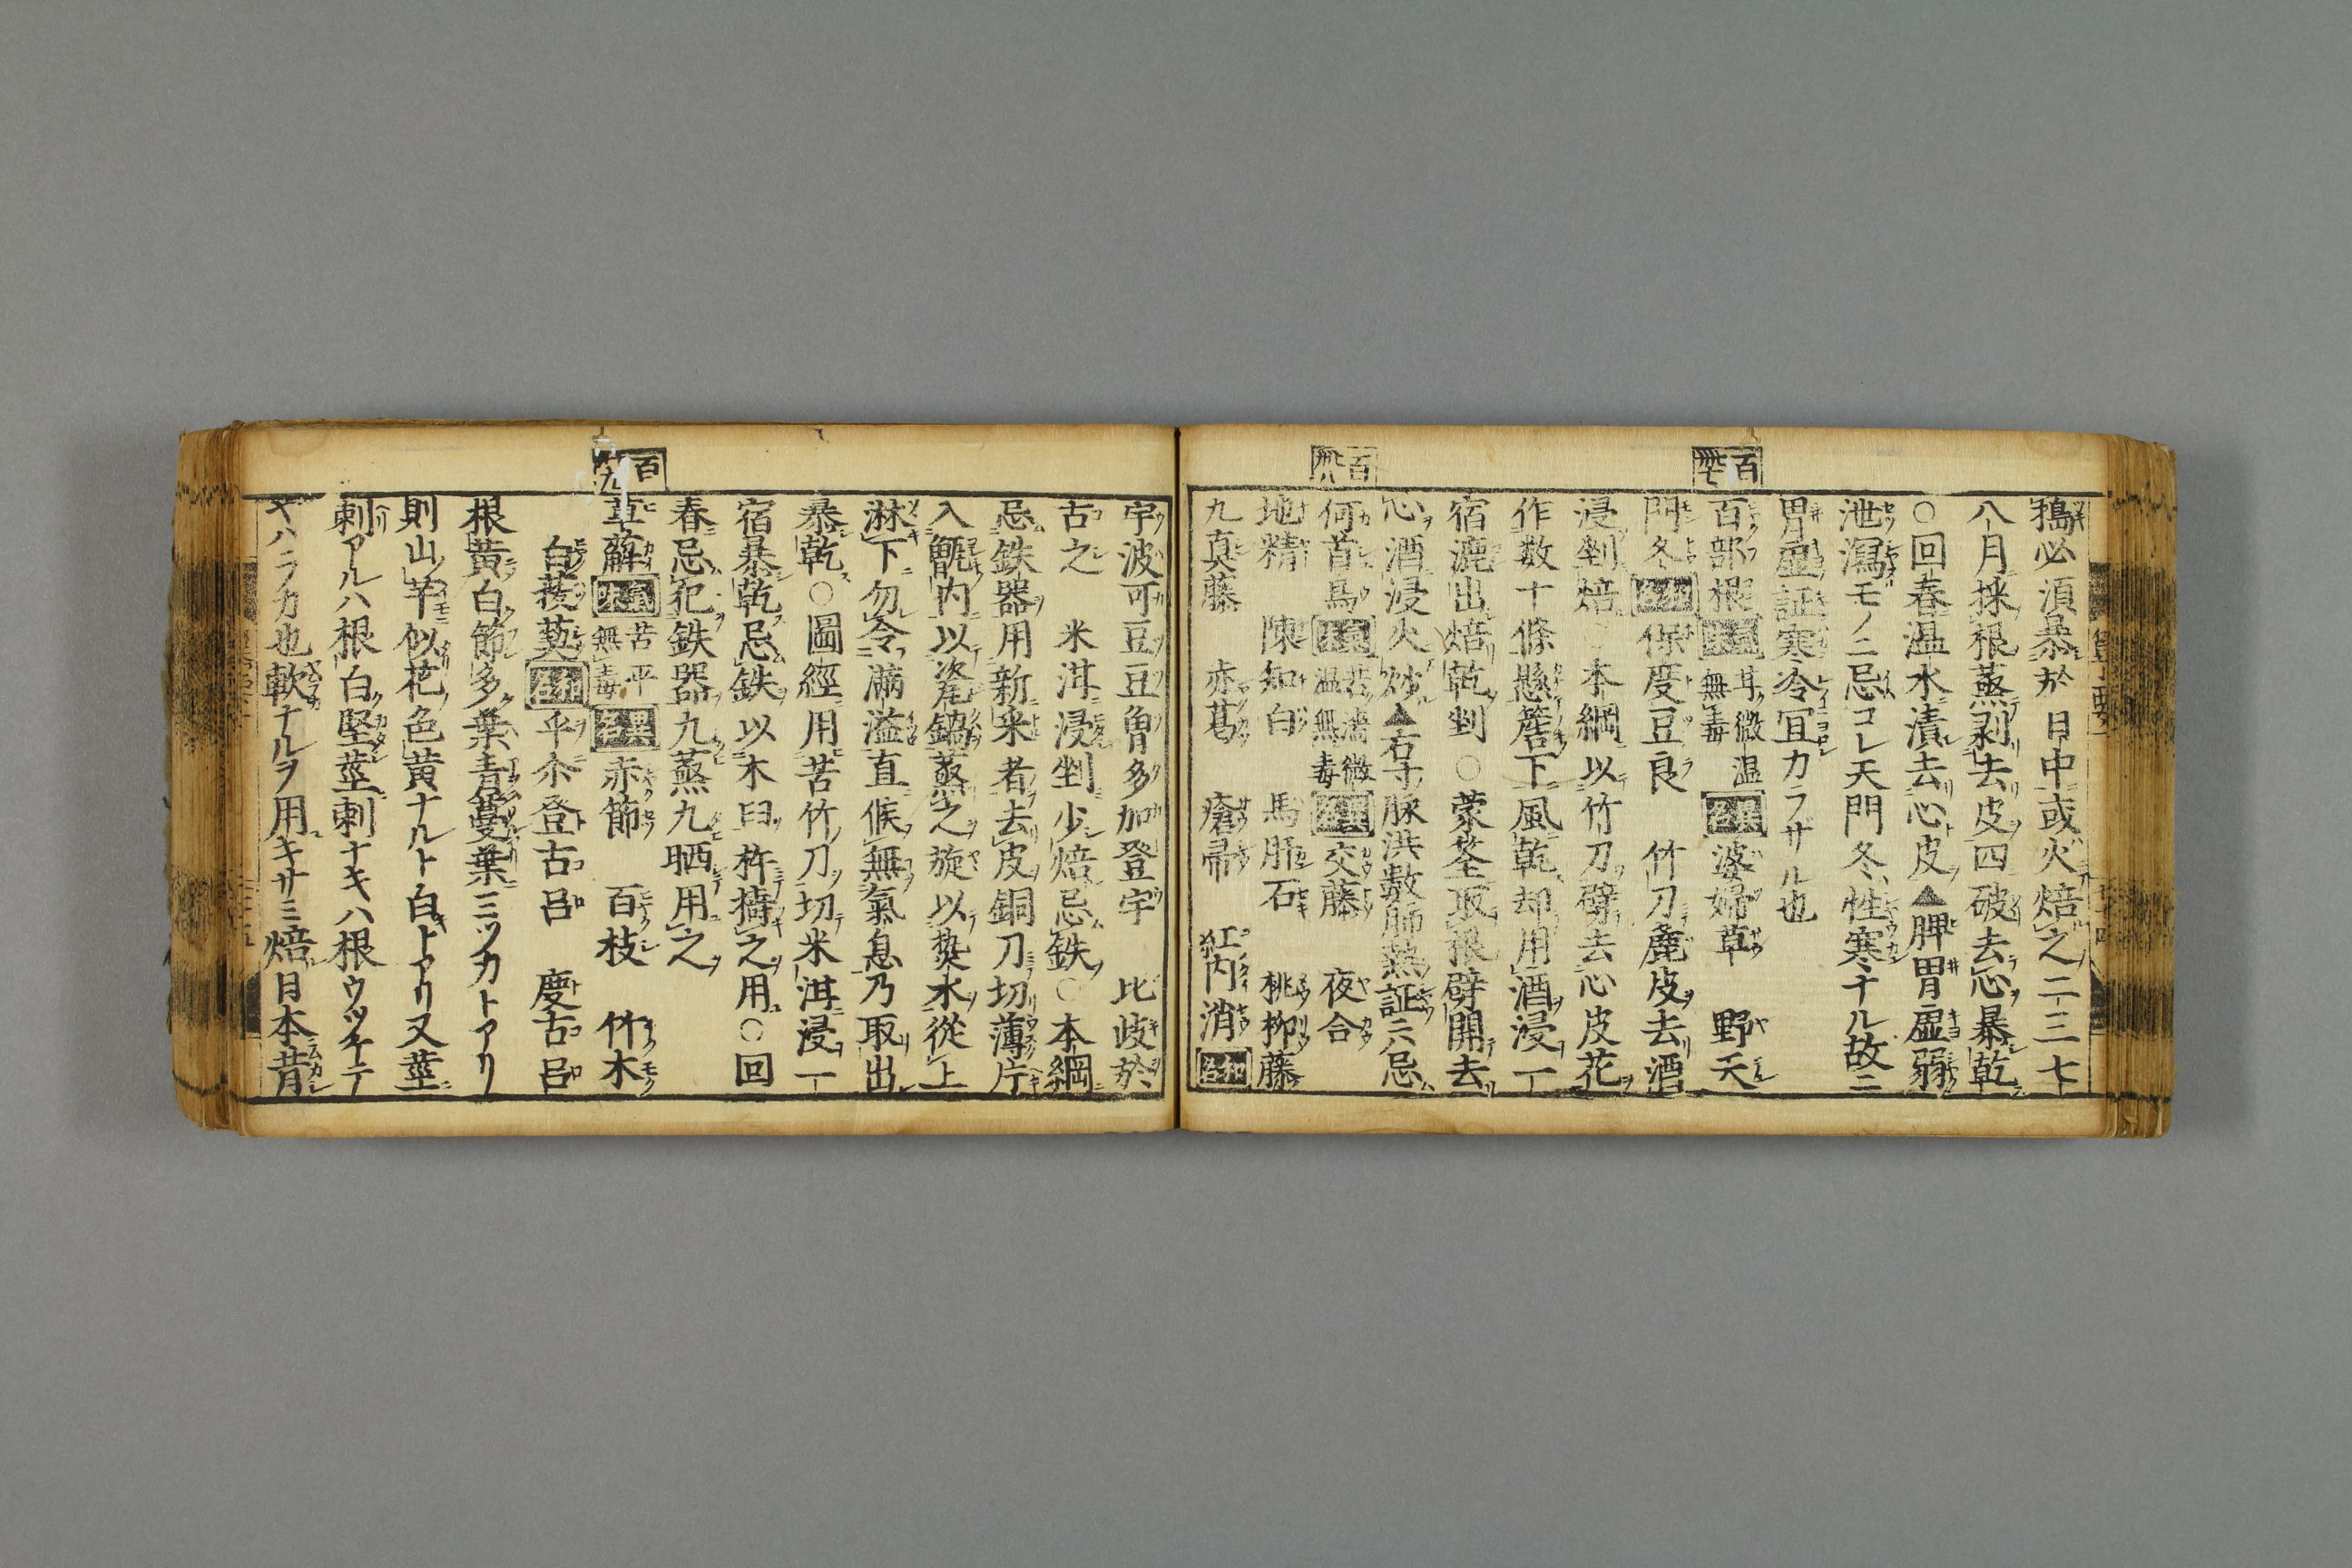 擣必須暴於日中或火焙之二三七十
八月採根蒸剥去皮四破去心暴乾
○回春温水漬去心皮▲脾胃虚弱
泄瀉モノニ忌コレ天門冬性寒ナル故ニ
胃虚証寒冷宜カラザル也
百 卅七
百部根 甘微温無毒 婆婦草 野天
門冬 保度豆良 竹刀麁皮去酒
浸剉焙○本綱以竹刀劈去心皮花
作数十條懸簷下風乾却用酒浸一
宿漉出焙乾剉○蒙筌取根劈開去
心酒浸火炒▲右寸脉洪数肺熱証六忌
百 卅八
何首烏 苦濇微温無毒 交藤 夜合
地精 陳知白 馬肝石 桃柳藤
九真藤 赤葛 瘡帚 紅内消
宇波可豆豆魯多加登宇 比岐於
古之 米泔浸剉少焙忌鉄○本綱
忌鉄器用新采者去皮銅刀切薄片
入甑内以瓷鍋蒸之旋以熱水從上
淋下勿令滿溢直候無氣息乃取出
暴乾○圖經用苦竹刀切米泔浸一
宿暴乾忌鉄以木臼杵擣之用○回
春忌犯鉄器九蒸九晒用之
百
萆薢 苦平無毒 赤節 百枝 竹木
白菝葜 乎尒登古呂 慶古呂
根黄白節多葉青蔓葉三ツカトアリ
則山芋似花色黄ナルト白トアリ又莖
刺アルハ根白堅莖刺ナキハ根ウツケテ
ヤハラカ也軟ナルヲ用キサミ焙日本昔